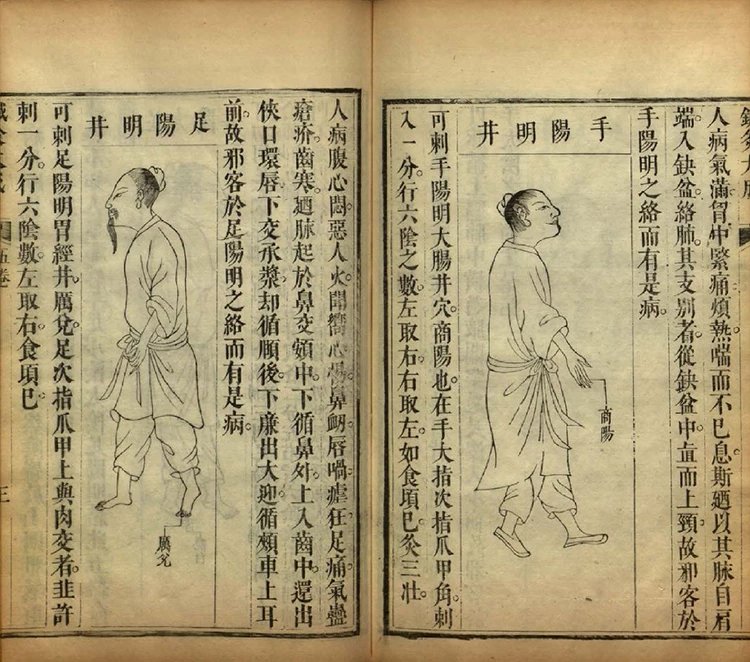 人病氣滿胷中緊痛煩熱喘而不已息斯廼以其脉自肩
端入鈌盆絡肺其支别者從鈌盆中直而上頸故邪客於
手陽明之絡而有是病。
手陽明井
商陽
可刺手陽明大腸井穴。商陽也。在手大指次指爪甲角刺
入一分。行六陰之數。左取右。右取左。如食頃已。灸三壯。
人病腹心悶。惡人火。聞嚮心惕。鼻衂唇喎。瘧狂足痛氣蠱
瘡疥。齒寒。廼脉起於鼻交頞中。下循鼻外。上入齒中。還出
俠口環唇。下交承漿。却循頤後。下廉出大迎。循頰車上耳
前。故邪客於足陽明之絡而有是病。
足陽明井
厲兌
可刺足陽明胃經井。厲兌。足次指爪甲上與肉交者。韭許
刺一分。行六陰數。左取右。食頃已。
五卷
三